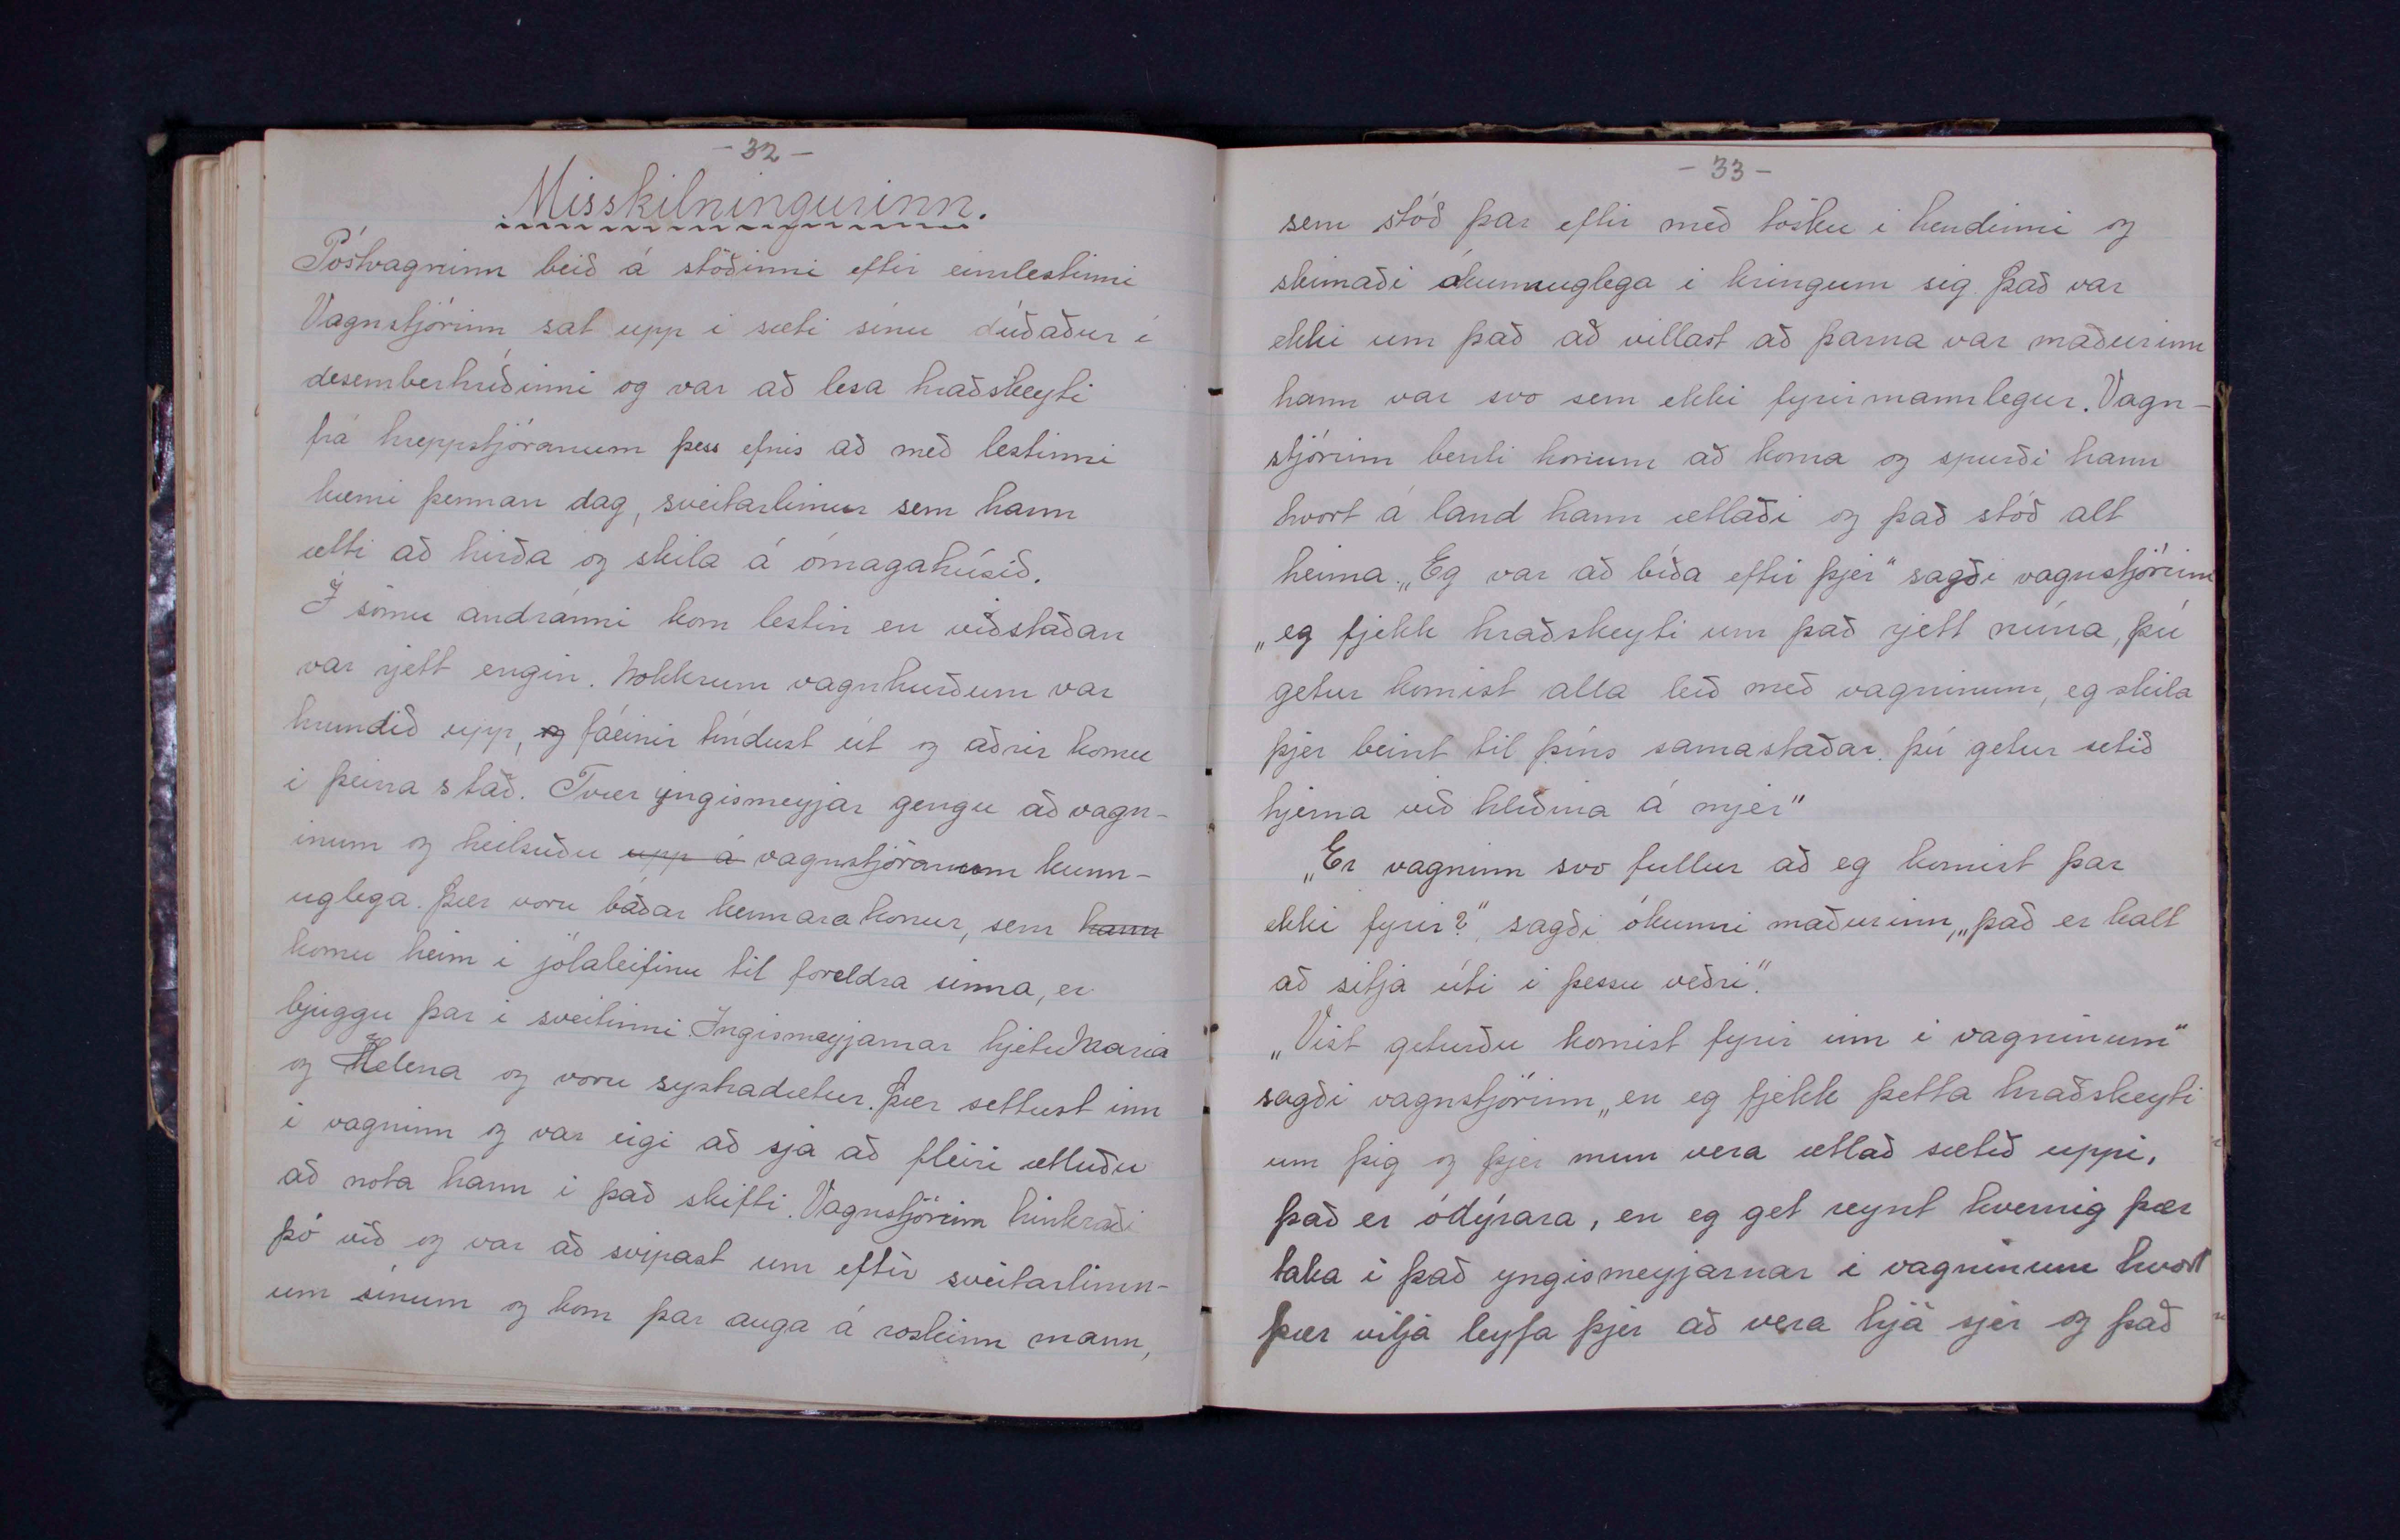 - 32 -
Misskilningurinn.
Póstvagninn beið á stöðinni eftir eimlestinni
Vagnstjórinn sat upp i sæti sínu dúðaður í
desemberhríðinni og var að lesa hraðskeyti
frá hreppstjóranum þess efnis að með lestinni
kæmi þennan dag, sveitarlimur sem hann
ætti að hirða og skila á ómagahúsið.
Í sömu andránni kom lestin en viðstaðan
var rjett engin. Nokkrum vagnhurðum var
hrundið upp, og fáeinir tíndust út og aðrir komu
i þeirra stað. Tvær yngismeyjar gengu að vagn-
inum og heilsuðu upp á vagnstjóranum kunn-
uglega. Þær voru báðar kennarakonur, sem hann
komu heim i jólaleifinu til foreldra sinna, er
bjuggu þar i sveitinni. Yngismeyjarnar hjetu Maria
og Helena og voru systradætur. Þær settust inn
i vagninn og var eigi að sjá að fleiri ætluðu
að nota hann i það skifti. Vagnstjórinn hinkraði
þó við og var að svipast um eftir sveitarlimn-
um sínum og kom þar auga á roskinn mann,
- 33 -
sem stóð þar eftir með tösku i hendinni og
skimaði ókunnuglega i kringum sig. Það var
ekki um það að villast að þarna var maðurinn
hann var svo sem ekki fyrirmannlegur. Vagn-
stjórinn benti honum að koma og spurði hann
hvort á land hann ætlaði og það stóð alt
heima. „Eg var að bíða eftir þjer" sagði vagnstjórinn
„eg fjekk hraðskeyti um það rjett núna, þú
getur komist alla leið með vagninum, eg skila
þjer beint til þíns samastaðar. þú getur setið
hjerna við hliðina á mjer"
„Er vagninn svo fullur að eg komist þar
ekki fyrir?", sagði ókunni maðurinn, „það er kalt
að sitja úti i þessu veðri".
„Vist geturðu komist fyrir inn i vagninum"
sagði vagnstjórinn „en eg fjekk þetta hraðskeyti
um þig og þjer mun vera ætlað sætið uppi,
það er ódýrara, en eg get reynt hvernig þær
taka i það yngismeyjarnar i vagninum hvort
þær vilja leyfa þjer að vera hjá sjer og það